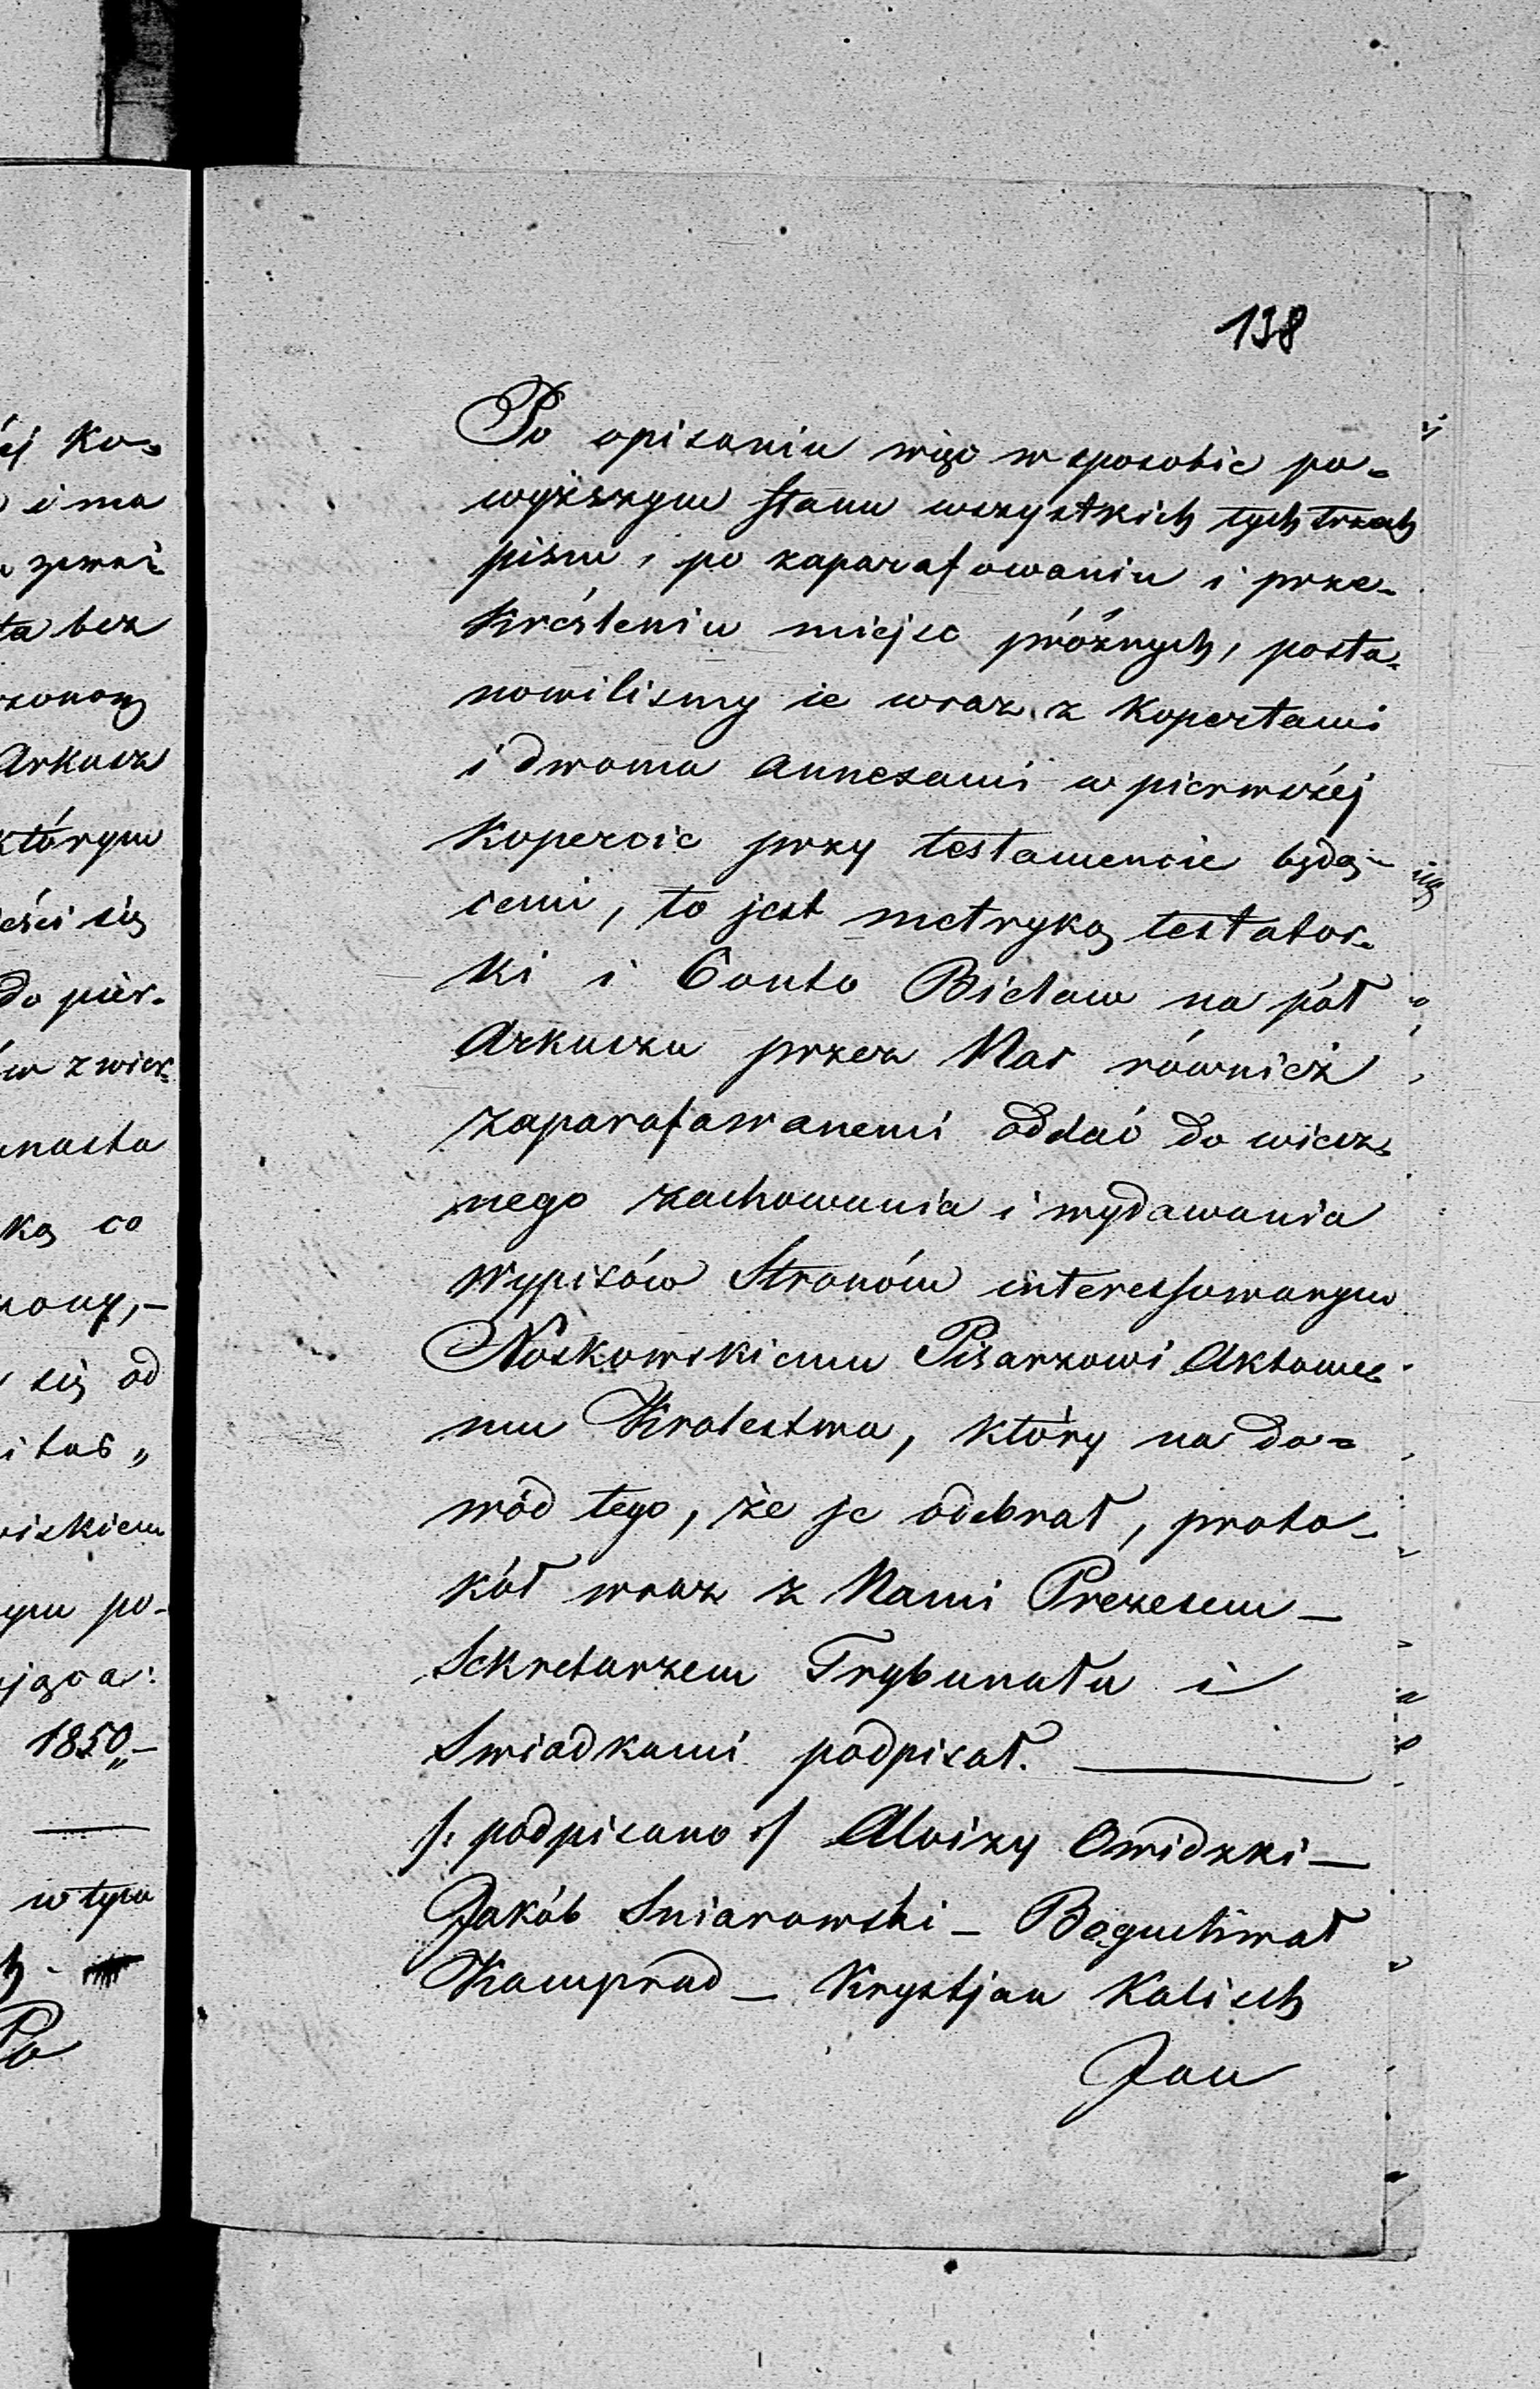 138
Po opisaniu więc w sposobie po-
wyższym stanu wszystkich tych trzech
pism i po zaparafowaniu i prze-
kreśleniu miejsc próżnych, posta-
nowilismy ie wraz z kopertami
i dwoma annexami w pierwszéj
kopercie przy testamencie będą-
cemi, to jest metryką testator-
ki i Conto Bielaw na pół
Arkuszu przez Nas również
zaparafowanemi oddać do wiecz-
nego zachowania i wydawania
wypisów Stronóm interessowanym
Noskowskiemu Pisarzowi Aktowe-
mu Krolestwa, który na do-
wód tego, że je odebrał, proto-
kół wraz z Nami Prezesem –
Sekretarzem Trybunału i
Swiadkami podpisał. —
/: podpisano :/ Aloizy Owidzki –
Jakób Sniarowski – Bogusławał
Kamprad – Krystjan Kalisch
Jan
ej Ko-
i ma
ta bez
Arkusz
którym
eści się
do pier-
ką co
się od
ym po-
1850,,-
w tym
Po